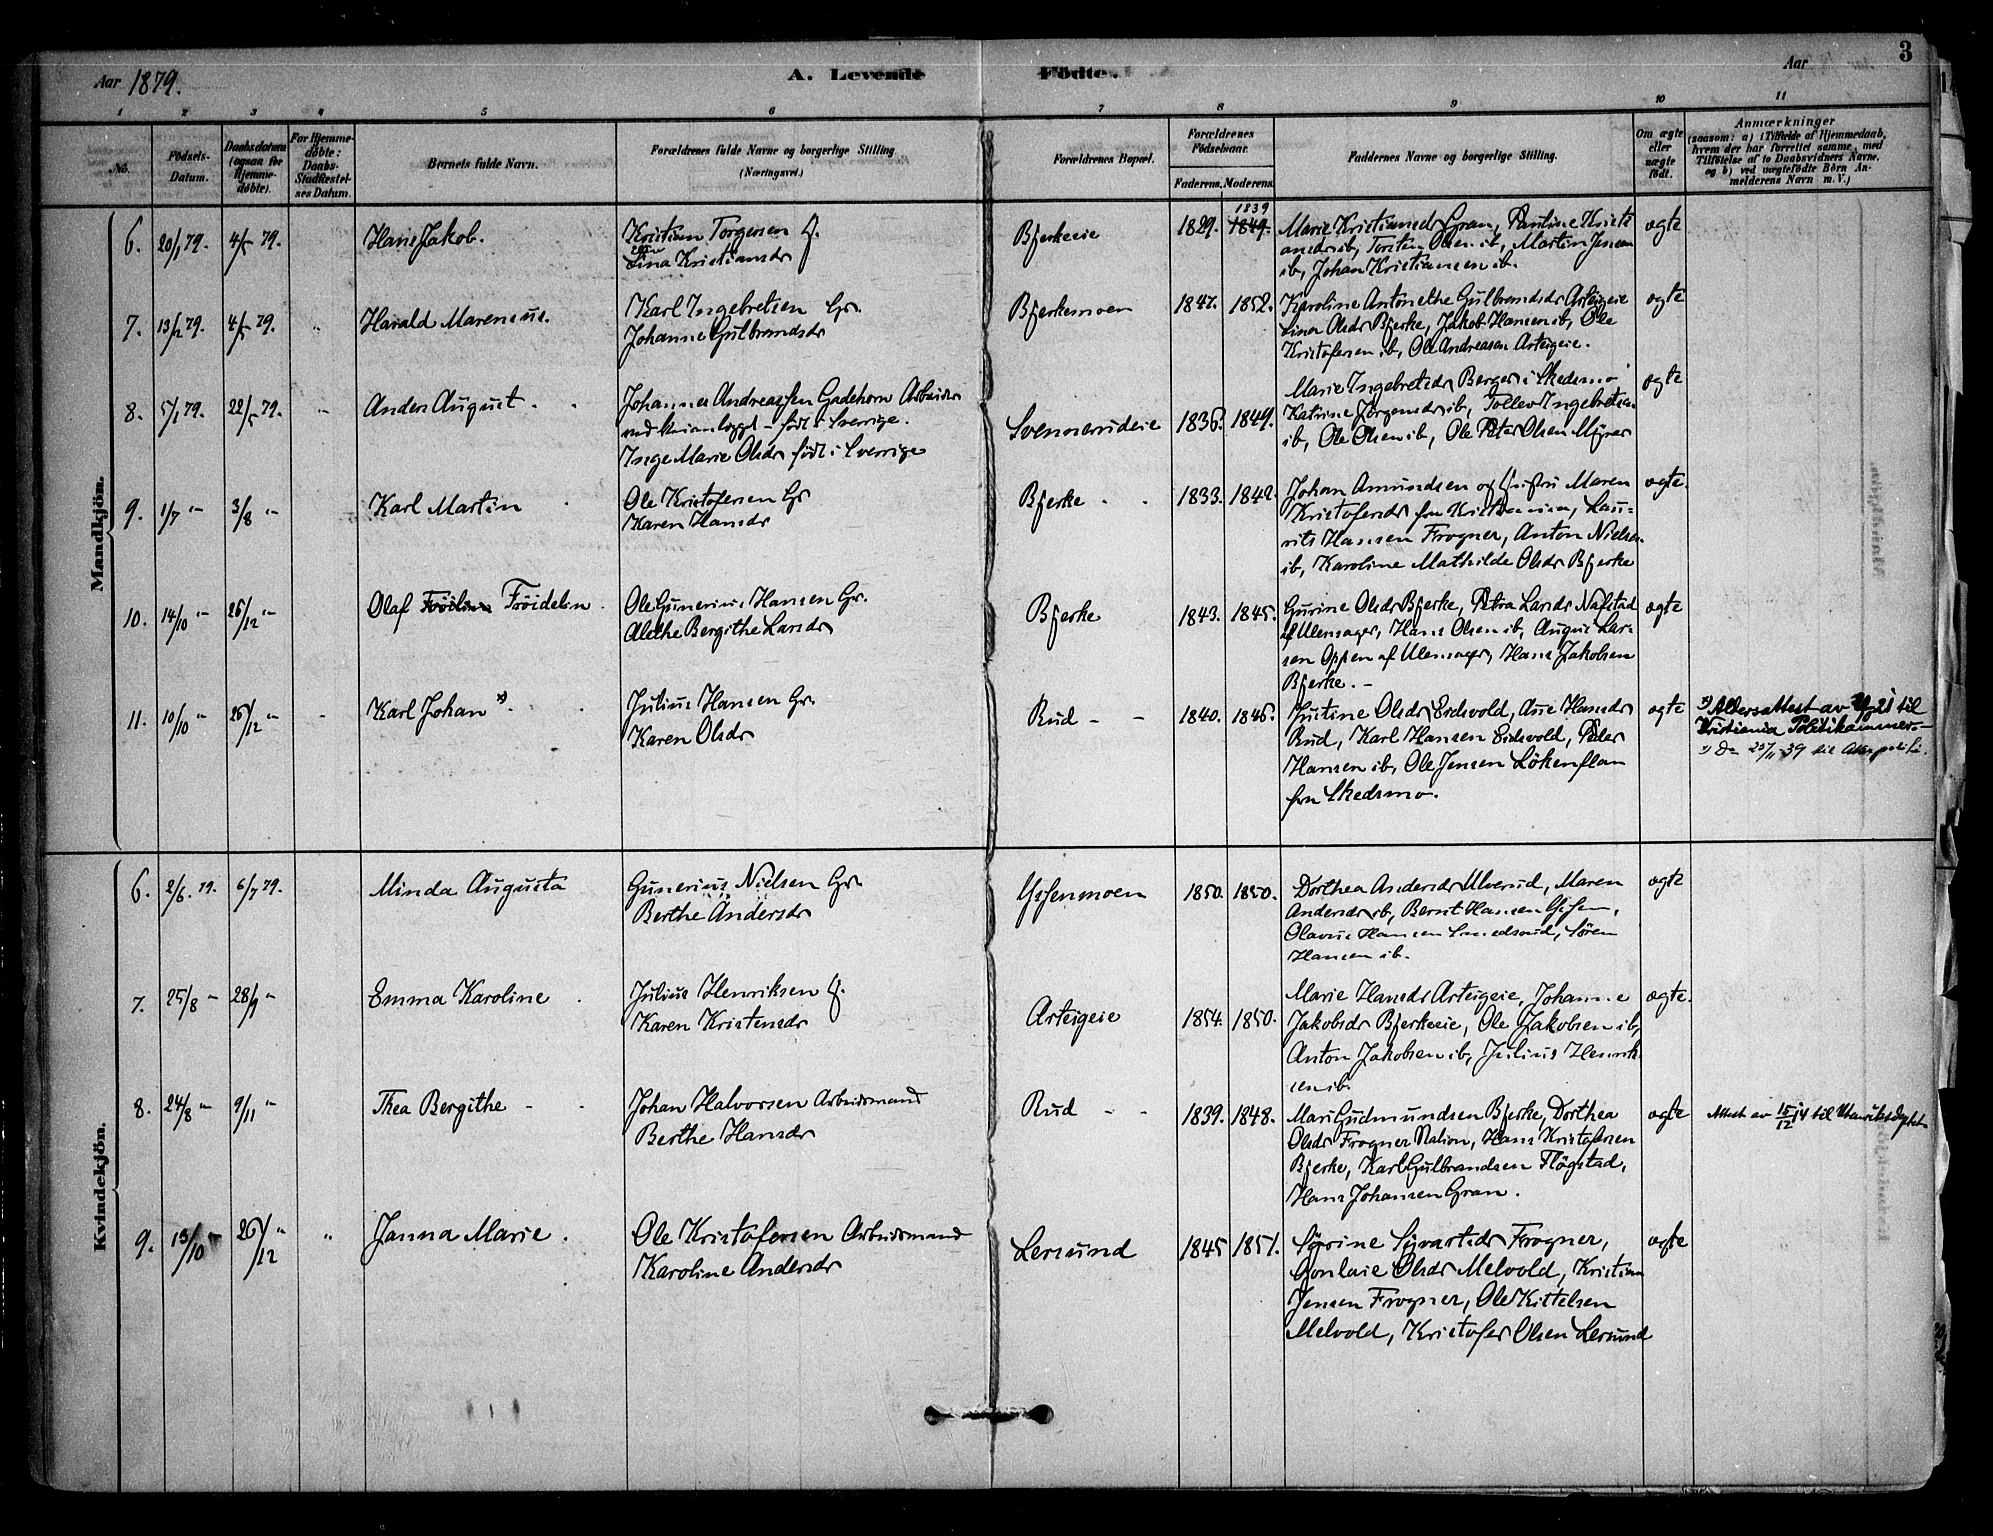 3
Aar 1879.
A. Levende Fødte.
Aar
1 2 3 4 5 6 7 8 9 10 11
No.
Födsels-Datum.
Daabsdatum (ogsaa for Hjemmedøbte).
For Hjemmedøbte: Daabs-Stadfæstelses Datum.
Barnets fulde Navn.
Forældrenes fulde Navne og borgerlige Stilling (Næringsvei.)
Forældrenes Bopæl.
Forældrenes Fødselsaar.
Faderens. Moderens.
Faddernes Navne og borgerlige Stilling.
Om ægte eller uægte født.
Anmærkninger
(saasom: a) i Tilfælde af Hjemmedaab, hvem der har forrettet samme, med Tilføielse af to Daabsvidners Navne, og b) ved uægtefødte Børn Anmelderens Navn m. V.)
Mandkjön.
6. 20/1 79. 4/5 79. Hans Jakob.
Kristian Torgersen
Lina Kristiansdr
Bjerkeeie
1829. 1849. 1839
Marie Kristiansdr Gran, Pauline Kristi
ansdr ib, Torsten Olsen ib, Martin Jensen
ib, Johan Kristiansen ib.
ægte
7. 13/2 79. 4/5 79. " Harald Marenius.
Karl Ingebretsen Gr.
Johanne Gulbrandsdr
Bjerkemoen
1847. 1852.
Karoline Antonethe Gulbrandsdr Arteigeie
Lina Olsdr Bjerke, Jakob Hansen ib, Ole
Kristofersen ib, Ole Andreasen Arteigeie.
ægte
8. 5/1 79. 22/5 79. " Anders August
Johannes Andreassen Gadehorn Arbeider
født i Sverrige.
Inge Marie Olsdr født i Sverrige
Svenserudeie
1836. 1849.
Marie Ingebretsdr Berger i Skedsmo
Katrine Jørgensdr ib, Tollev Ingebretsen
ib, Ole Olsen ib, Ole Peter Olsen Myrer
ægte
9. 1/7 " 3/8 " Karl Martin
Ole Kristofersen Gr
Karen Hansdr
Bjerke
1833. 1842.
Johan Amundsen og Hustru Maren
Kristofersdr fra Kristiania, Lau-
rits Hansen Frogner, Anton Nielsen
ib, Karoline Mathilde Olsdr Bjerke
ægte.
10. 14/10 " 26/12 " Olaf Fröilin Fröidelin.
Ole Gunerius Hansen Gr.
Alethe Bergithe Larsdr
Bjerke
1843. 1845.
Gurine Olsdr Bjerke, Petra Larsdr Nafstad
af Ulensager, Hans Olsen ib, August Lar-
sen Oppen af Ulensager, Hans Jakobsen
Bjerke. -
ægte
11. 10/10 " 26/12 " - Karl Johan x).
Julius Hansen Gr.
Karen Olsdr
Rud - -
1840. 1846.
Justine Olsdr Eidsvold, Ane Hansdr
Rud, Karl Hansen Eidsvold, Peder
Hansen ib, Ole Jensen Lökenflan
fra Skedsmo.
ægte
x) Aldersattest av 21 til
Kristiania Politikammer.
x) Do 25/11 39 til Aker politi.
Kvindekjön.
6. 2/6. 79. 6/7 79. Minda Augusta
Gunerius Nielsen Gr.
Berthe Andersdr
Ysjenmoen
1850. 1850.
Dorthea Andersdr Ulverud, Maren
Andersdr ib, Bernt Hansen
Olavus Hansen Smedsrud, Søren
Hansen ib.
ægte
7. 25/8 " 28/9 " Emma Karoline
Julius Henriksen
Karen Kristensdr
Arteigeie
1854. 1850.
Marie Hansdr Arteigeie, Johanne
Jakobsdr Bjerkeeie, Ole Jakobsen ib,
Anton Jakobsen ib, Julius Henrik
sen ib.
ægte.
8. 24/8 " 9/11 " Thea Bergithe - -
Johan Halvorsen Arbeidsmand
Berthe Hansdr
Rud - -
1839. 1848.
Mari Gudmundsen Bjerke, Dorthea
Olsdr Frogner Station, Hans Kristofersen
Bjerke, Karl Gulbrandsen Flögstad,
Hans Johansen Gran.
ægte
Attest av 15/12 14 til Utenriksdept
9. 13/10 " 26/12 " " Janna Marie.
Ole Kristofersen Arbeidsmand
Karoline Andersdr
Lersund
1845 1851.
Sørine Syvertsdr Frogner,
Gonlaie Olsdr Melvold, Kristian
Jensen Frogner, Ole Kittelsen
Melvold, Kristofer Olsen Lersund
ægte